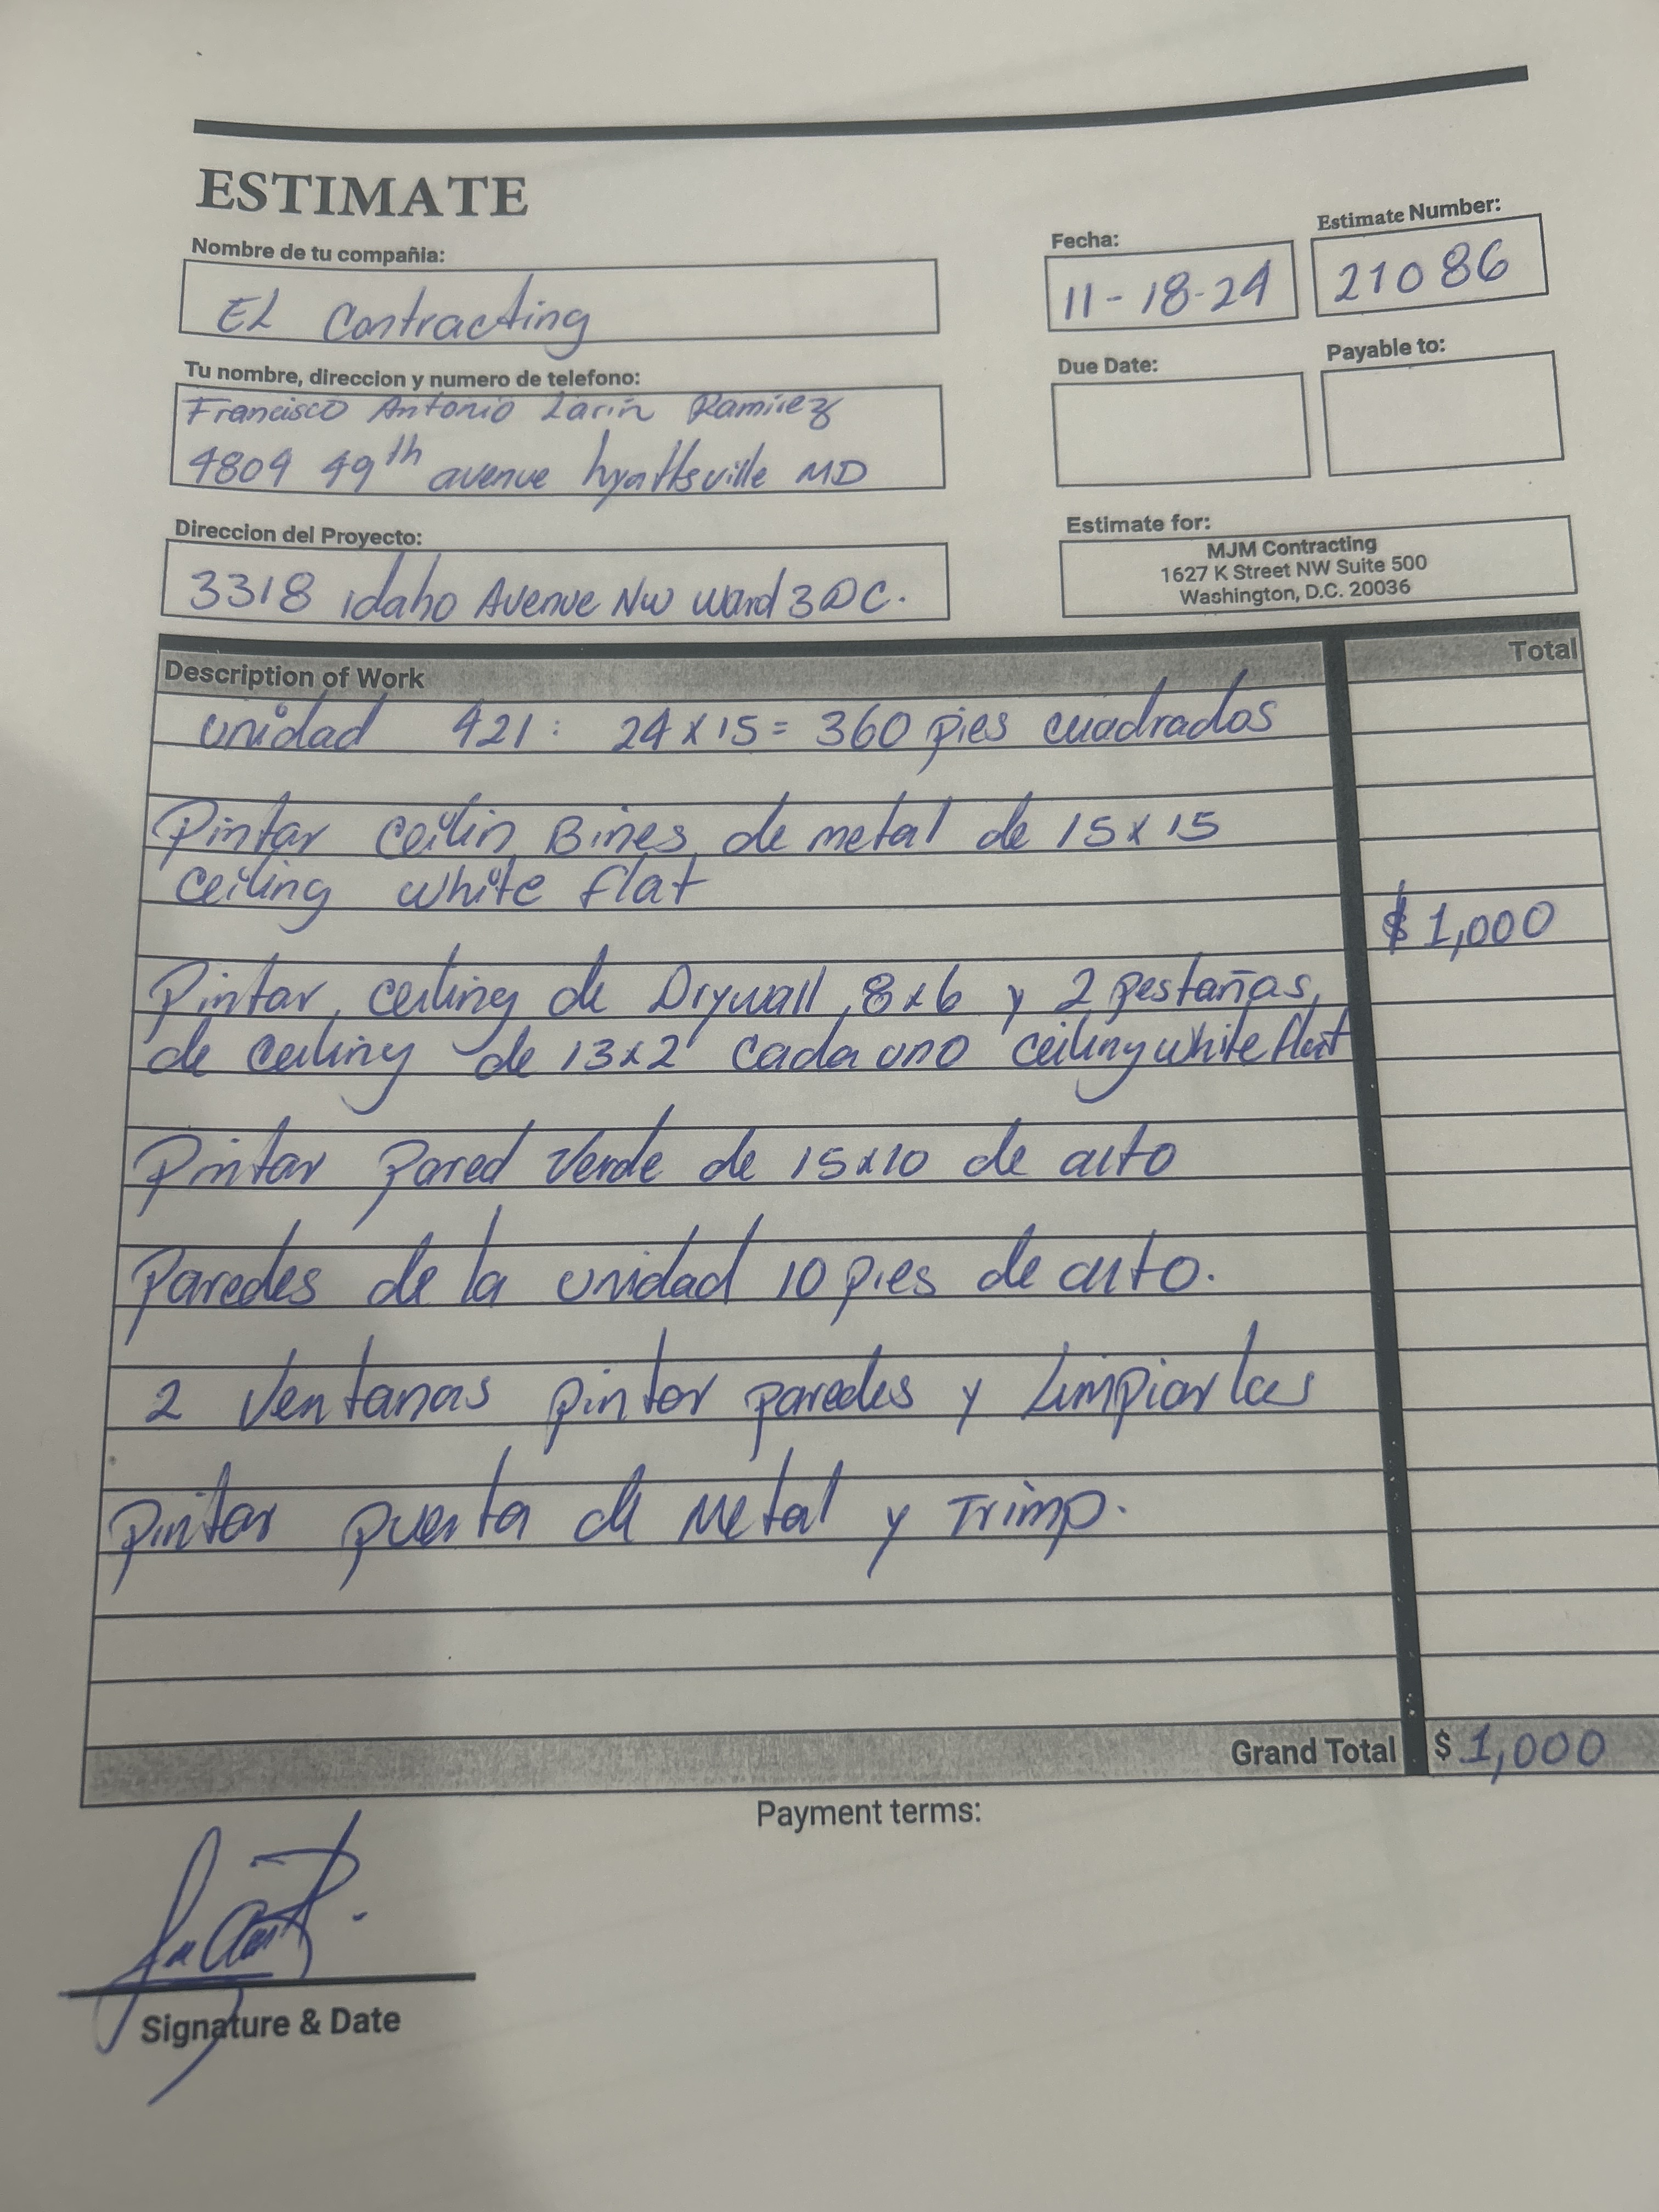 ESTIMATE
Nombre de tu compañia:
EL Contracting
Fecha:
11-18-24
Estimate Number:
21086
Tu nombre, direccion y numero de telefono:
Francisco Antonio Larin Ramirez
4809 49th avenue hyattsville MD
Due Date:
Payable to:
Direccion del Proyecto:
3318 idaho Avenue NW Ward 3 DC.
Estimate for:
MJM Contracting
1627 K Street NW Suite 500
Washington, D.C. 20036
Description of Work
Total
unidad 421: 24x15= 360 pies cuadrados
Pintar ceilin Bines de metal de 15x15
ceiling white flat
$ 1,000
Pintar ceiling de Drywall 8x6 y 2 pestañas
de ceiling de 13x2 cada uno ceiling white flat
Pintar Pared Verde de 15x10 de alto
Paredes de la unidad 10 pies de alto.
2 Ventanas pintar paredes y Limpiarlas
pintar puerta de Metal y Trimp.
Grand Total $ 1,000
Payment terms:
Signature & Date